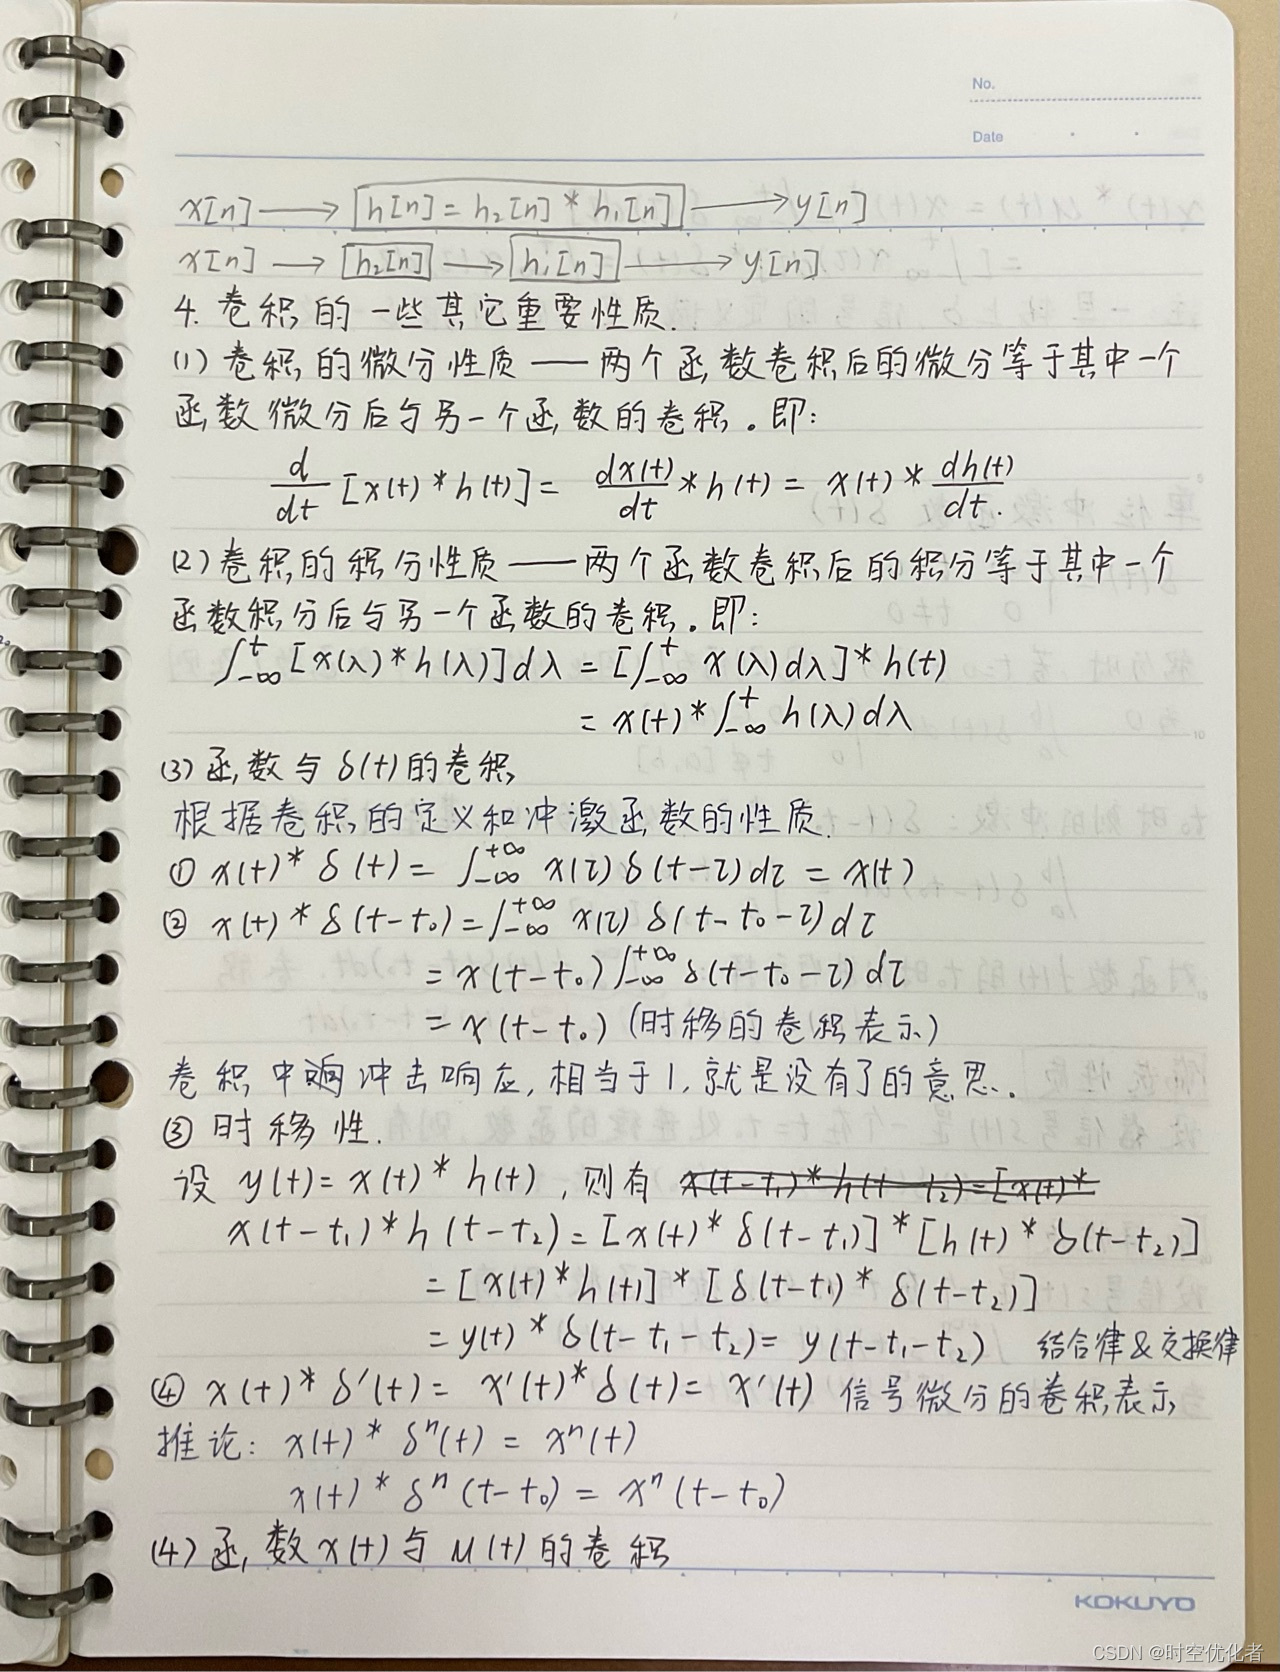 No.
Date
x[n] ⟶ h[n] = h₂[n] * h₁[n] ⟶ y[n]
x[n] ⟶ h₂[n] ⟶ h₁[n] ⟶ y[n]
4. 卷积的一些其它重要性质.
(1) 卷积的微分性质——两个函数卷积后的微分等于其中一个
函数微分后与另一个函数的卷积。即:
d/dt [x(t) * h(t)] = dx(t)/dt * h(t) = x(t) * dh(t)/dt.
(2) 卷积的积分性质——两个函数卷积后的积分等于其中一个
函数积分后与另一个函数的卷积。即:
∫₋∞ᵗ [x(λ) * h(λ)] dλ = [∫₋∞ᵗ x(λ) dλ] * h(t)
= x(t) * ∫₋∞ᵗ h(λ) dλ
(3) 函数与 δ(t) 的卷积
根据卷积的定义和冲激函数的性质.
① x(t) * δ(t) = ∫₋∞⁺∞ x(τ) δ(t-τ) dτ = x(t)
② x(t) * δ(t-t₀) = ∫₋∞⁺∞ x(τ) δ(t-t₀-τ) dτ
= x(t-t₀) ∫₋∞⁺∞ δ(t-t₀-τ) dτ
= x(t-t₀) (时移的卷积表示)
卷积中 冲击响应, 相当于1, 就是没有了的意思.
③ 时移性.
设 y(t) = x(t) * h(t), 则有 x(t-t₁) * h(t-t₂) = [x(t) *
x(t-t₁) * h(t-t₂) = [x(t) * δ(t-t₁)] * [h(t) * δ(t-t₂)]
= [x(t) * h(t)] * [δ(t-t₁) * δ(t-t₂)]
= y(t) * δ(t-t₁-t₂) = y(t-t₁-t₂) 结合律&交换律
④ x(t) * δ'(t) = x'(t) * δ(t) = x'(t) 信号微分的卷积表示
推论: x(t) * δⁿ(t) = xⁿ(t)
x(t) * δⁿ(t-t₀) = xⁿ(t-t₀)
(4) 函数 x(t) 与 u(t) 的卷积
KOKUYO
CSDN @时空优化者